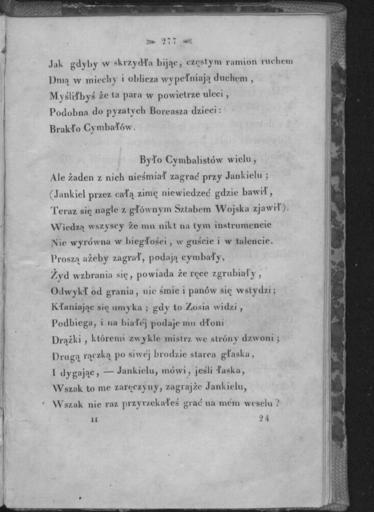 277
Jak gdyby w skrzydła bijąc, częstym ramion ruchem
Dmą w miechy i oblicza wypełniają duchem,
Myśliłbyś że ta para w powietrze uleci,
Podobna do pyzatych Boreasza dzieci:
Brakło Cymbałów.
Było Cymbalistów wielu,
Ale żaden z nich nieśmiał zagrać przy Jankielu;
(Jankiel przez całą zimę niewiedzeć gdzie bawił,
Teraz się nagle z głównym Sztabem Wojska zjawił).
Wiedzą wszyscy że mu nikt na tym instrumencie
Nie wyrówna w biegłości, w guście i w talencie.
Proszą ażeby zagrał, podają cymbały,
Żyd wzbrania się, powiada że ręce zgrubiały,
Odwykł od grania, nie śmie i panów się wstydzi;
Kłaniając się umyka; gdy to Zosia widzi,
Podbiega, i na białéj podaje mu dłoni
Drążki, któremi zwykle mistrz we stróny dzwoni;
Drugą rączką po siwéj brodzie starca głaska,
I dygając, — Jankielu, mówi, jeśli łaska,
Wszak to me zaręczyny, zagrajże Jankielu,
Wszak nie raz przyrzekałeś grać na mém weselu?
II 24